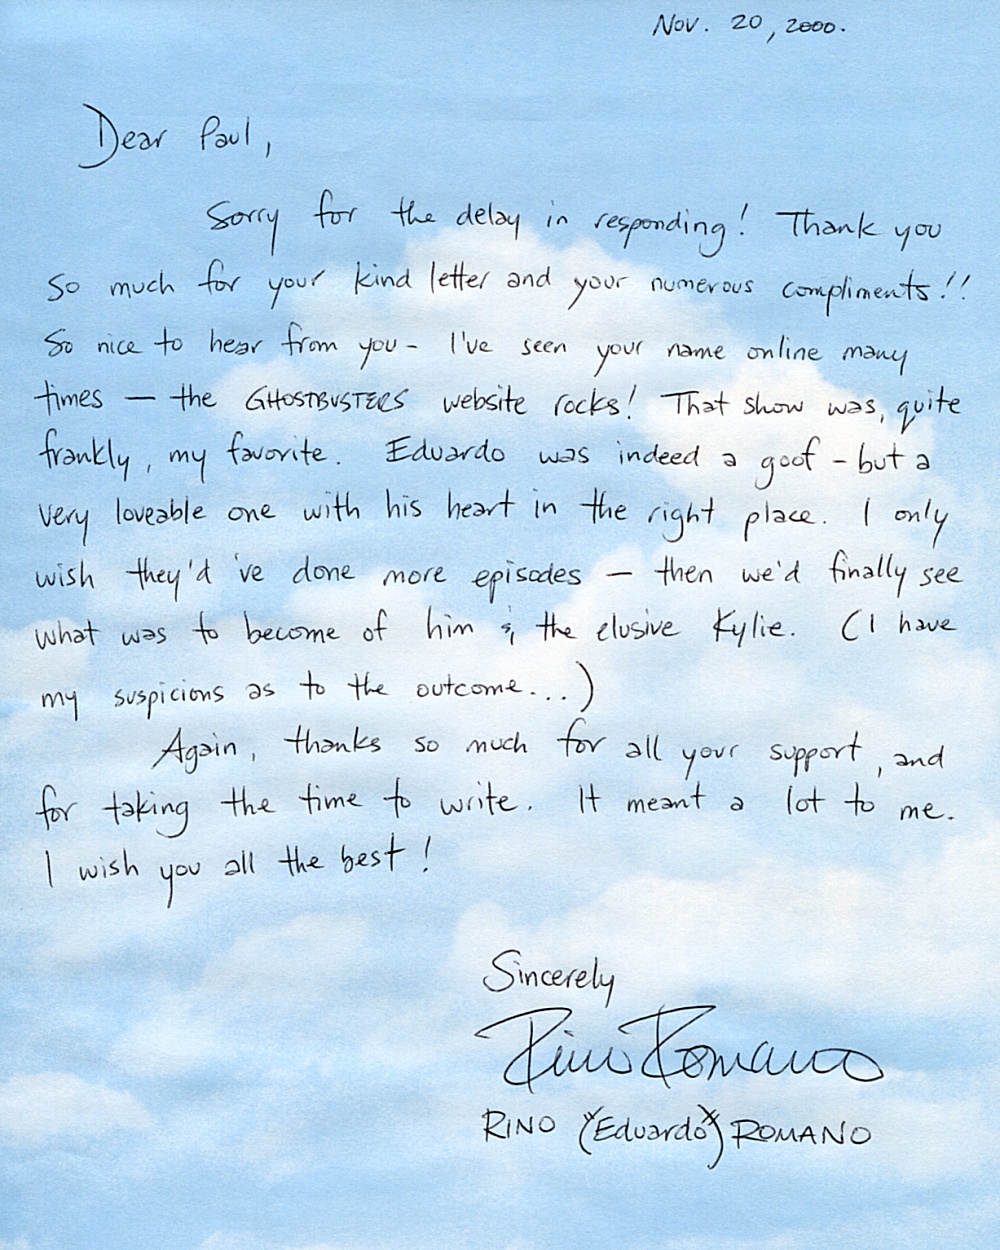 Nov. 20, 2000.
Dear Paul,
Sorry for the delay in responding! Thank you
so much for your kind letter and your numerous compliments!!
So nice to hear from you - I've seen your name online many
times — the GHOSTBUSTERS website rocks! That show was, quite
frankly, my favorite. Eduardo was indeed a goof - but a
very loveable one with his heart in the right place. I only
wish they'd 've done more episodes — then we'd finally see
what was to become of him & the elusive Kylie. (I have
my suspicions as to the outcome...)
Again, thanks so much for all your support, and
for taking the time to write. It meant a lot to me.
I wish you all the best!
Sincerely
Rino Romano
RINO ("Eduardo") ROMANO